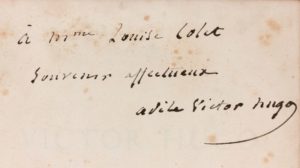 à mme Louise Colet
Souvenir affectueux
adèle Victor hugo